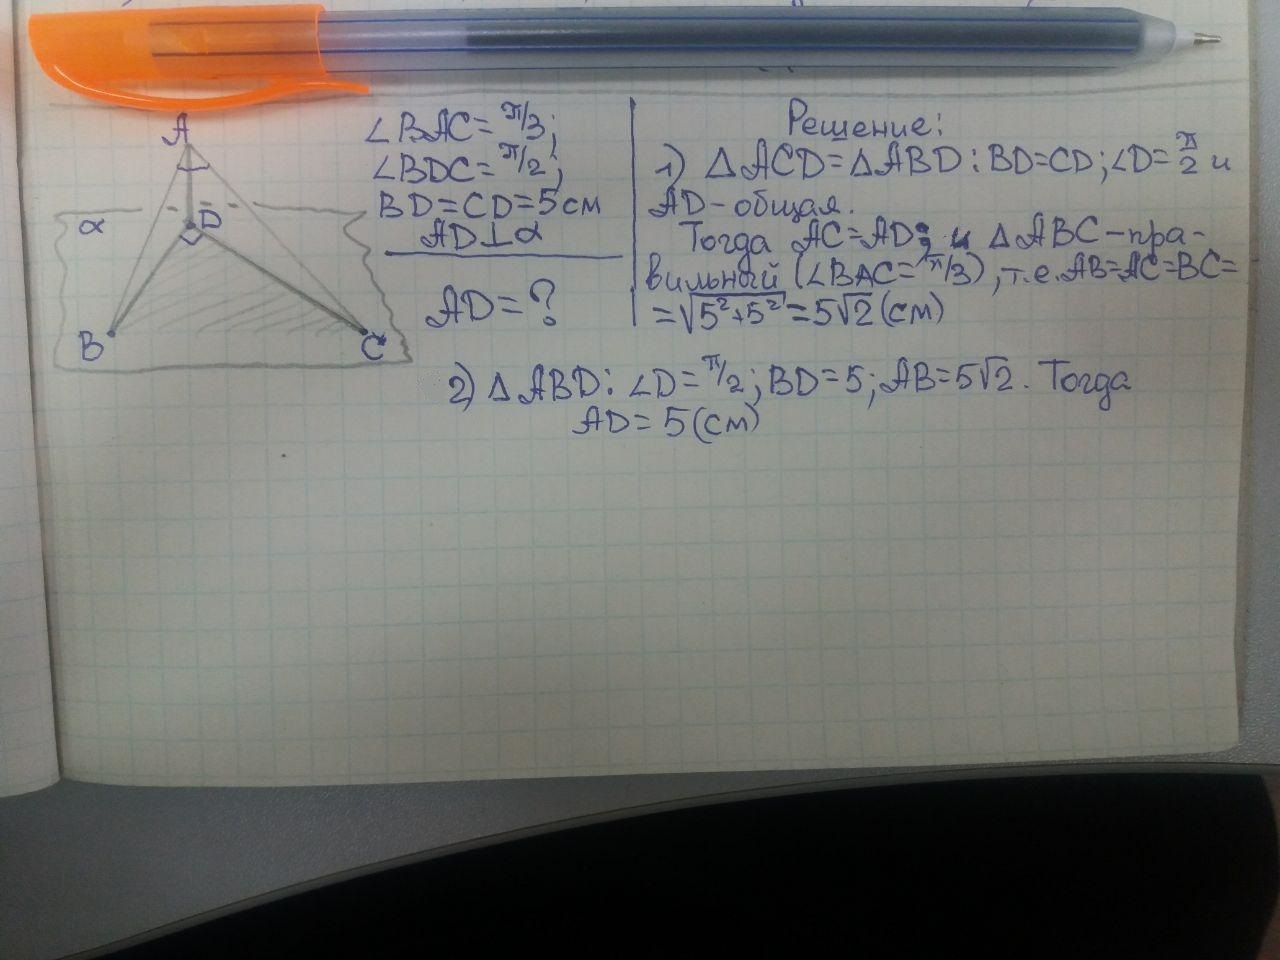 A
∠BAC = π/3;
∠BDC = π/2;
BD = CD = 5 см
AD ⊥ α
AD = ?
α
D
B
C
Решение:
1) Δ ACD = Δ ABD : BD = CD; ∠D = π/2 и
AD - общая.
Тогда AC = AD; и Δ ABC - пра-
вильный (∠BAC = π/3), т.е. AB = AC = BC =
= √5² + 5² = 5√2 (см)
2) Δ ABD : ∠D = π/2; BD = 5; AB = 5√2. Тогда
AD = 5 (см)